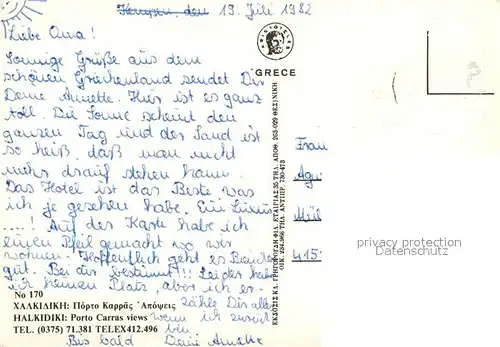 Kempen, den 19. Juli 1982
Liebe Oma!
Sonnige Grüße aus dem
schönen Griechenland sendet Dir
Deine Annette. Hier ist es ganz
toll. Die Sonne scheint den
ganzen Tag und der Sand ist
so heiß, daß man nicht
mehr drauf stehen kann.
Das Hotel ist das Beste was
ich je gesehen habe. Ein Luxus
....! Auf der Karte habe ich
einen Pfeil gemacht wo wir
wohnen! Hoffentlich geht es
gut. Bei dir bestimmt!!! Leider habe
ich keinen Platz, aber ich er-
zähle Dir alles
wenn ich zurück
bin
Bis bald Deine Annette
No 170
ΧΑΛΚΙΔΙΚΗ: Πόρτο Καρράς Ἀπόψεις
HALKIDIKI: Porto Carras views
TEL. (0375) 71.381 TELEX412.496
GRECE
ΕΚΔΟΣΙΣ ΚΛ. ΓΡΗΓΟΡΙΑΔΗ ΦΙΛ. ΕΤΑΙΡΙΑΣ 35 ΤΗΛ. ΑΠΟΘ. 263-029 ΘΕΣ/ΝΙΚΗ
ΟΙΚ. 234.366 ΤΗΛ. ΑΝΤΙΠΡ. 730-473
Frau
Mül
415
privacy protection
Datenschutz